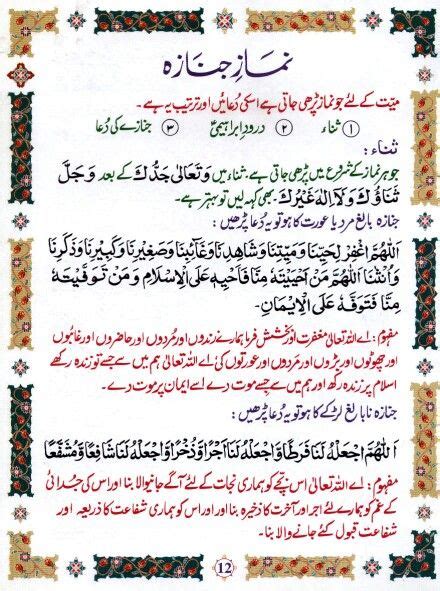 نمازِ جنازہ
میّت کے لئے جو نماز پڑھی جاتی ہے اسکی دُعائیں اور ترتیب یہ ہے۔
۱ ثناء ۲ درودِ ابراہیمیؑ ۳ جنازے کی دُعا
ثناء :
جو ہر نماز کے شروع میں پڑھی جاتی ہے، ثناء میں وَتَعَالٰی جَدُّكَ کے بعد وَجَلَّ
ثَنَاؤُكَ وَلَا اِلٰهَ غَيْرُكَ۔ بھی کہہ لیں تو بہتر ہے۔
جنازہ بالغ مرد یا عورت کا ہو تو یہ دُعا پڑھیں:
اَللّٰهُمَّ اغْفِرْ لِحَيِّنَا وَمَيِّتِنَا وَشَاهِدِنَا وَغَآئِبِنَا وَصَغِيْرِنَا وَكَبِيْرِنَا وَذَكَرِنَا
وَاُنْثٰنَا اَللّٰهُمَّ مَنْ اَحْيَيْتَهٗ مِنَّا فَاَحْيِهٖ عَلَى الْاِسْلَامِ وَمَنْ تَوَفَّيْتَهٗ
مِنَّا فَتَوَفَّهٗ عَلَى الْاِيْمَانِ۔
مفہوم: اے اللہ تعالیٰ مغفرت اور بخشش فرما ہمارے زندوں اور مُردوں اور حاضروں اور غائبوں
اور چھوٹوں اور بڑوں اور مَردوں اور عورتوں کی اے اللہ تعالیٰ ہم میں سے جسے تو زندہ رکھے
اسلام پر زندہ رکھ اور ہم میں سے جسے موت دے اسے ایمان پر موت دے۔
جنازہ نابالغ لڑکے کا ہو تو یہ دُعا پڑھیں:
اَللّٰهُمَّ اجْعَلْهُ لَنَا فَرَطًا وَّاجْعَلْهُ لَنَا اَجْرًا وَّذُخْرًا وَّاجْعَلْهُ لَنَا شَافِعًا وَّمُشَفَّعًا
مفہوم: اے اللہ تعالیٰ اس بچّے کو ہماری نجات کے لئے آگے جانیوالا بنا اور اس کی جدائی
کے غم کو ہمارے لئے اجر اور آخرت کا ذخیرہ بنا اور اس کو ہماری شفاعت کا ذریعہ اور
شفاعت قبول کئے جانے والا بنا۔
12